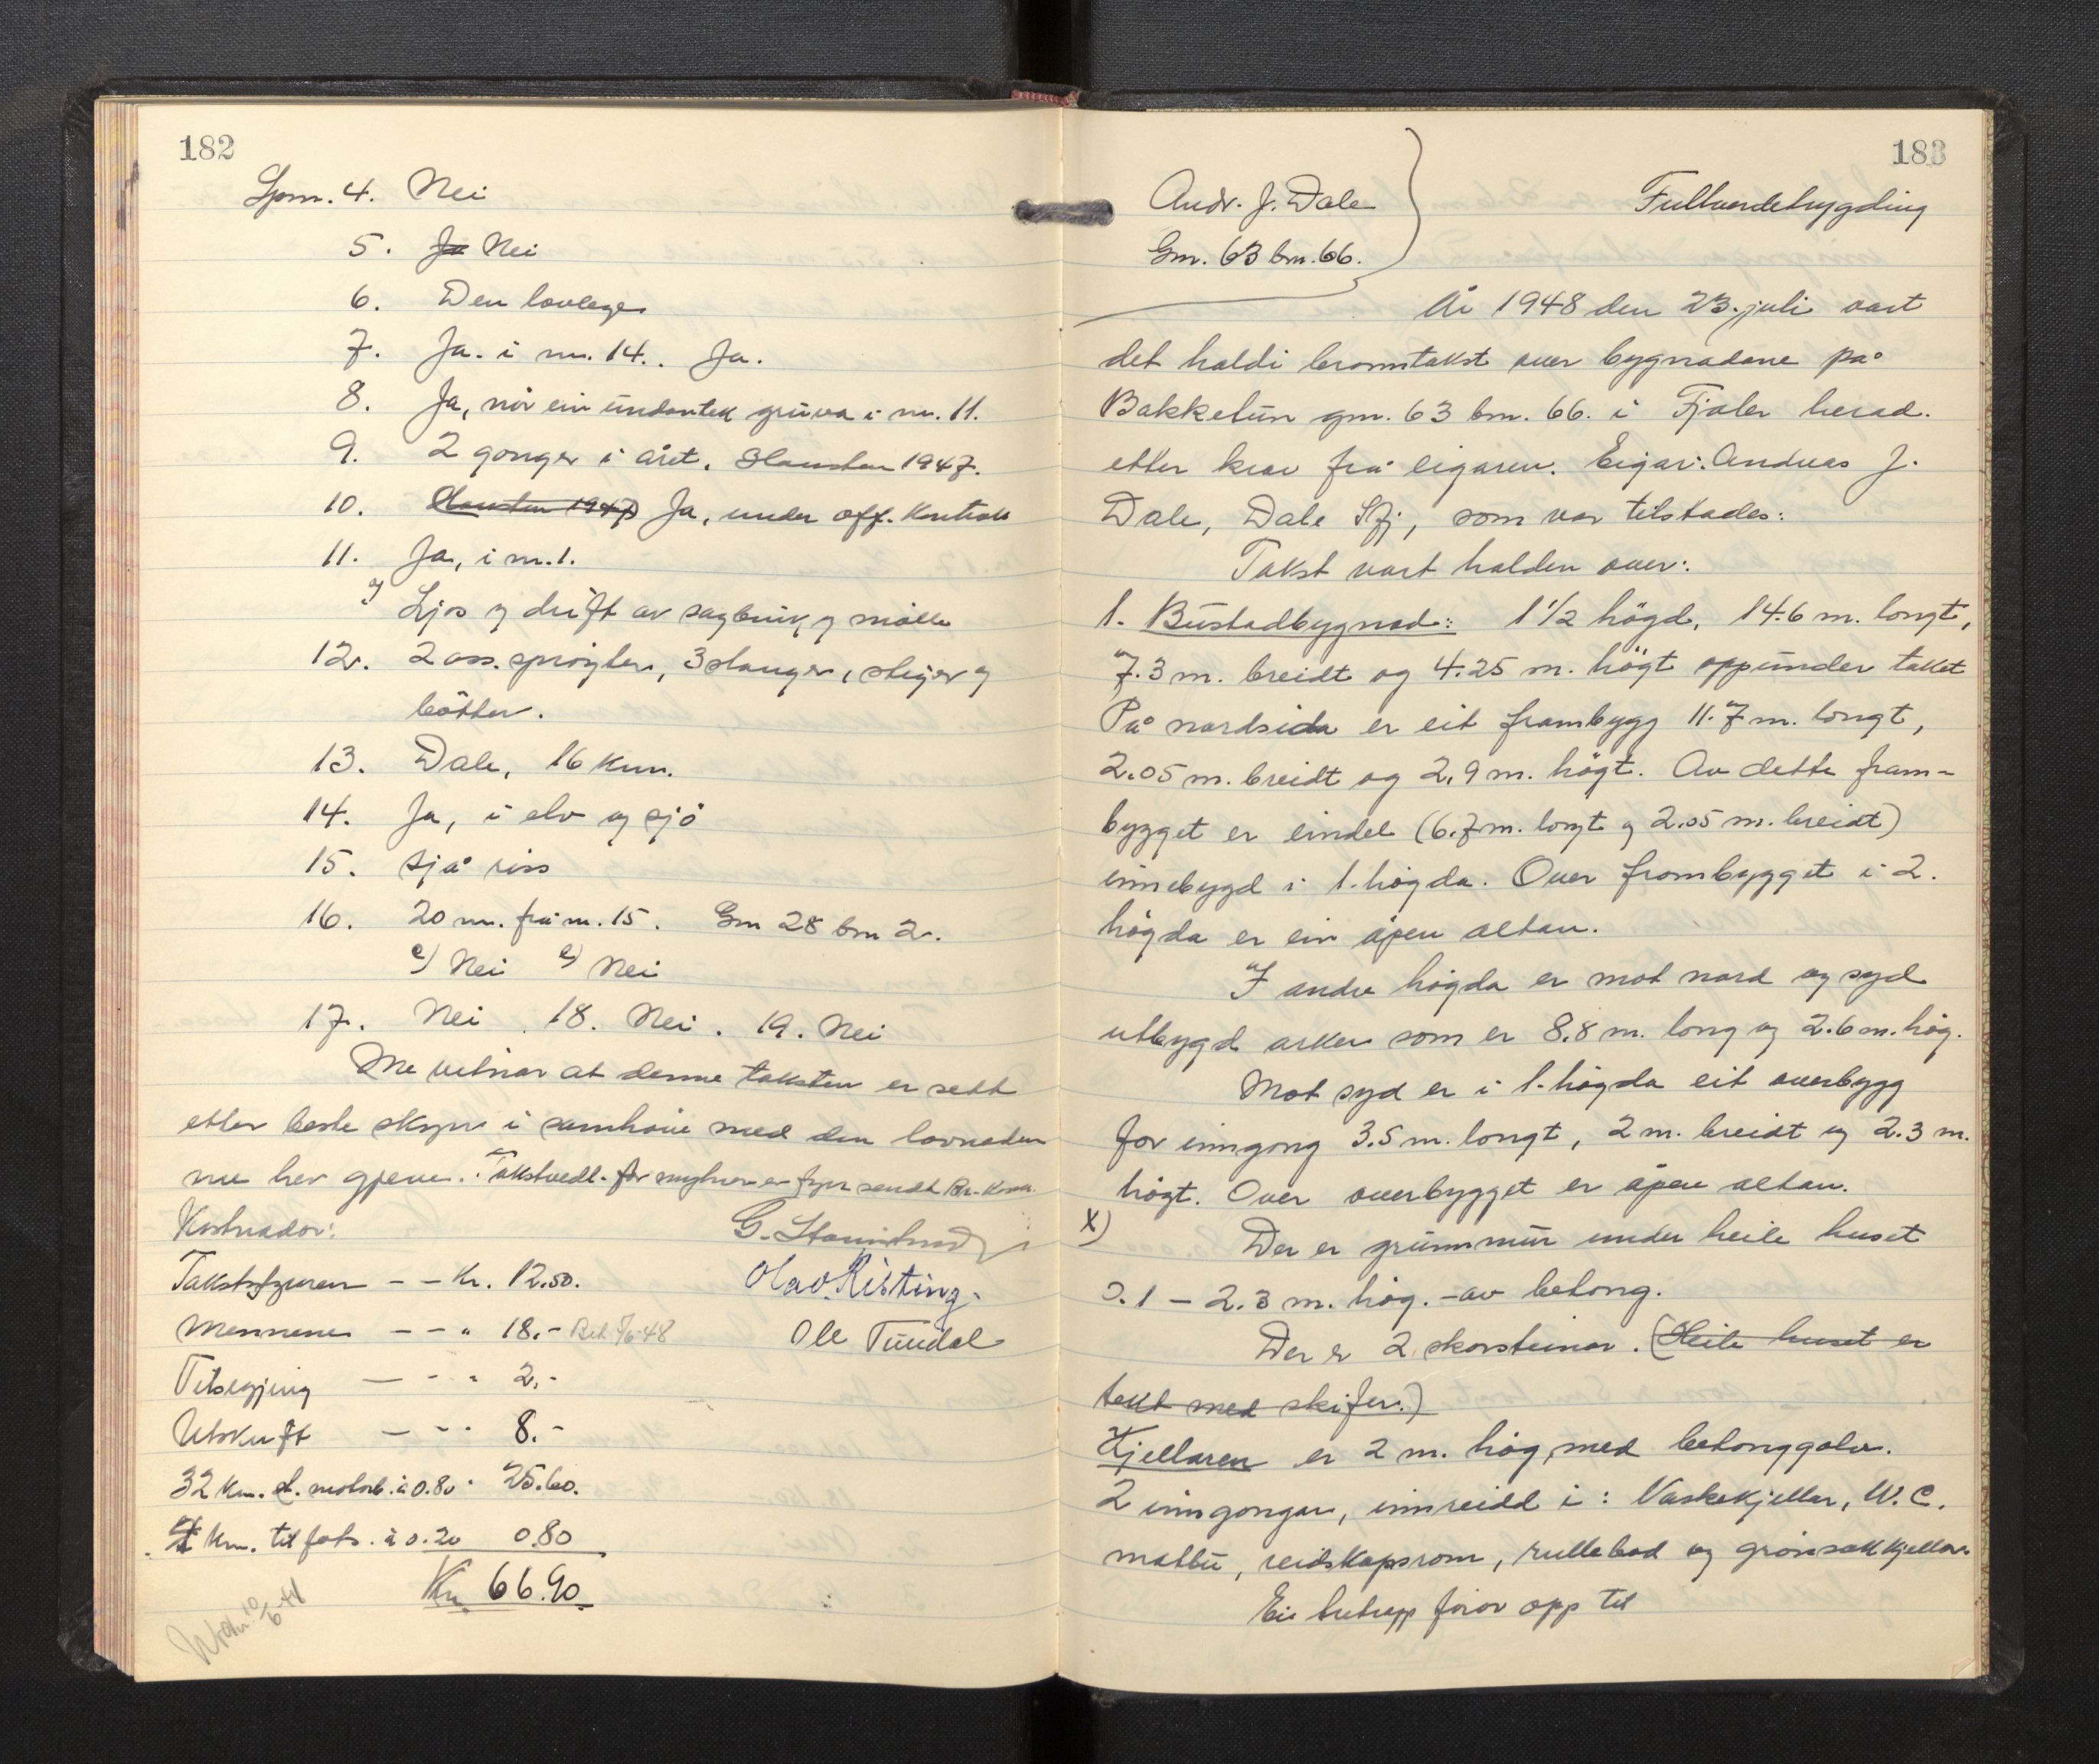 182
Spm. 4. Nei
5. Ja Nei
6. Den lovlege
7. Ja. i nr. 14. Ja.
8. Ja, når ein undantek grúva i nr. 11.
9. 2 gonger i året. Hausten 1947.
10. Hausten 1947 Ja, under off. Kontroll
11. Ja, i nr. 1.
Ljos og drift av sagbruk og mölle
12. 2 ass. spröyter, 3 slanger, stiger og
bötter.
13. Dale, 16 km.
14. Ja, i elv og sjö
15. Sjå riss
16. 20 m. frå nr. 15. Gnr 28 bnr 2.
Nei Nei
17. Nei. 18. Nei. 19. Nei
Me vitnar at denne taksten er sett
etter beste skyn i samhöve med den lovnaden
me hev gjeve. Takstvedl. for er fyrr sendt Br. Kassa.
Kostnader:
Takststyraren - - Kr. 12.50.
Olav Risting.
Mennene - - " 18.- Bet. 48
Ole Tundal
Tilsegjing - - " 2.-
Utskrift - - " 8.-
32 km. motorb. à 0.80 " 25.60.
4 km. til fots. à 0.20 0.80
Kr. 66.90
183
Andr. J. Dale
Fullverdetrygding
Gnr. 63 bnr. 66.
År 1948 den 23. juli vart
det haldi branntakst over bygnadane på
Bakketún gnr. 63 bnr. 66. i Fjaler herad.
etter krav frå eigaren. Eigar: Andreas J.
Dale, Dale Sfj, som var tilstades:
Takst vart halden over:
1. Bústadbygnad: 1 1/2 högd, 14.6 m. langt,
7.3 m. breidt og 4.25 m. högt oppúnder taket
På nordsida er eit frambygg 11.7 m. langt,
2.05 m. breidt og 2.9 m. högt. Av dette fram-
bygget er eindel (6.7 m. langt og 2.05 m. breidt)
innebygd i 1. högda. Over frambygget i 2.
högda er ein åpen altan.
I andre högda er mot nord og syd
utbygd arker som er 8.8 m. lang og 2.6 m. hög.
Mot syd er i 1. högda eit overbygg
for inngong 3.5 m. langt, 2 m. breidt og 2.3 m.
högt. Over overbygget er åpen altan.
x) Der er grunnmúr under heile huset
0.1 - 2.3 m. hög. - av betong.
Der er 2 skorsteinar. (Heile huset er
tekt med skifer.)
Kjellaren er 2 m. hög, med betonggolv.
2 inngonger, innreidd i: Vaskekjellar, W.C.
matbú, reidskapsrom, rullebod og grönsakkjellar.
Ei tretrapp förer opp til